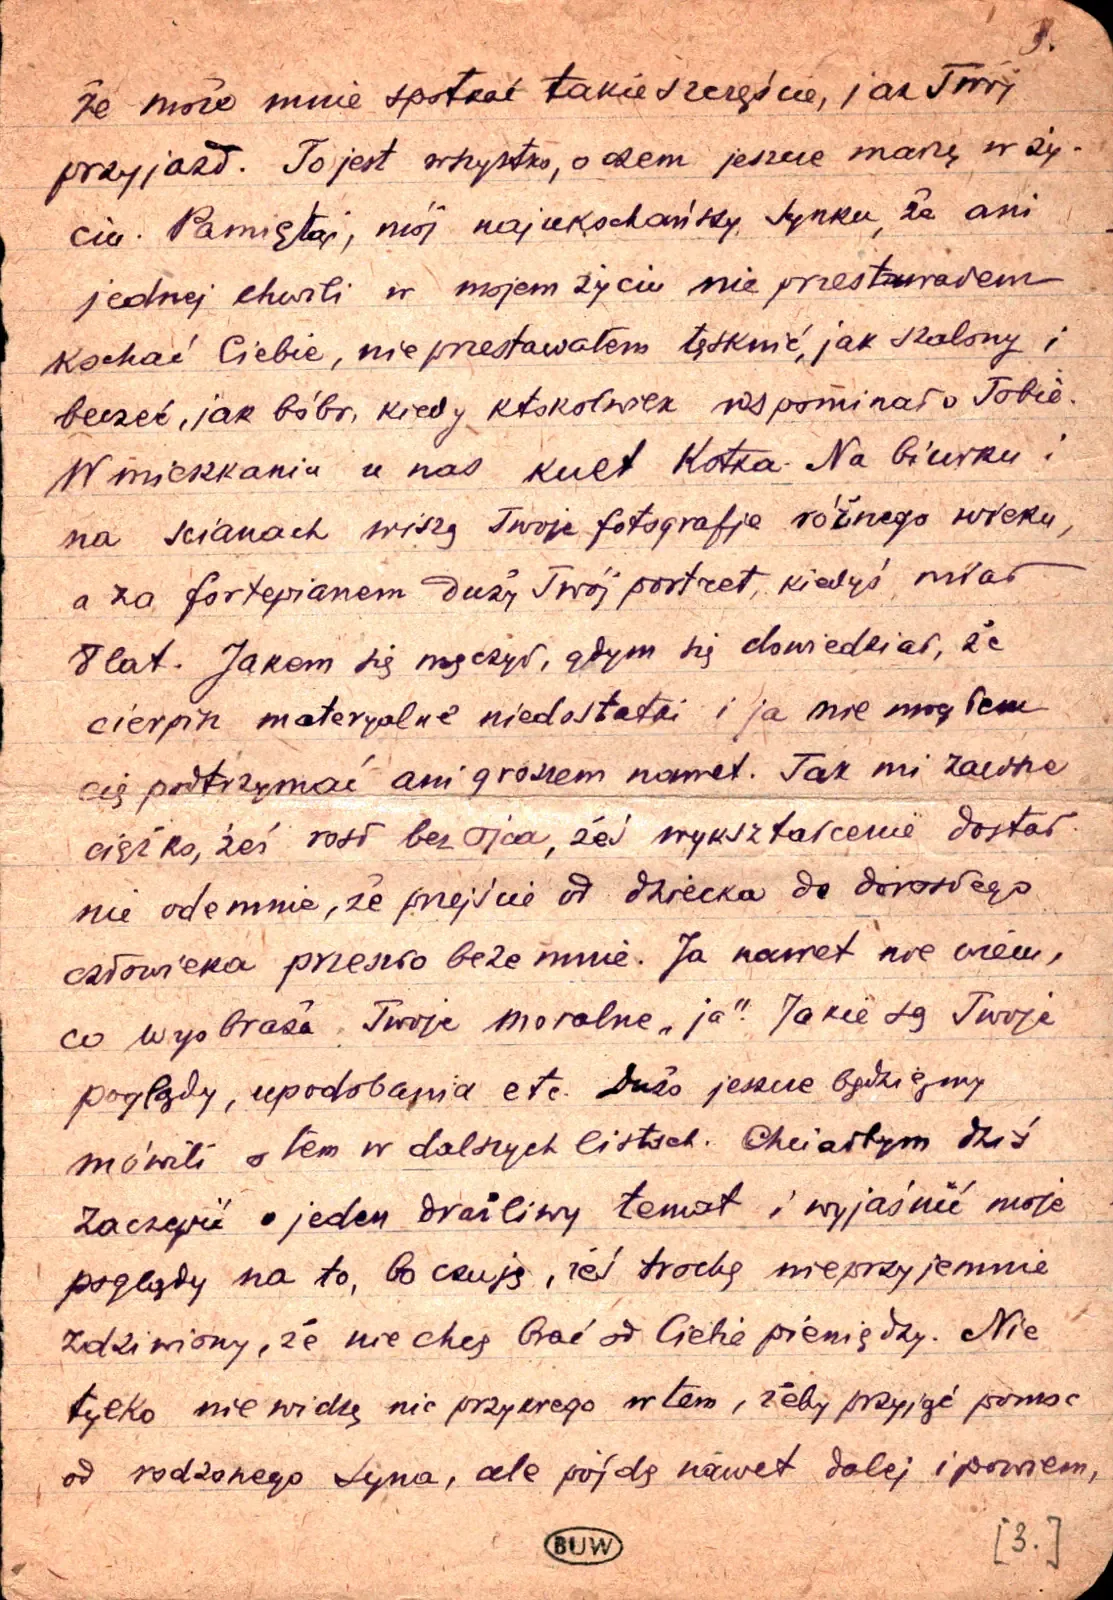 3.
że może mnie spotkać takie szczęście, jak Twój
przyjazd. To jest wszystko, o czem jeszcze marzę w ży-
ciu. Pamiętaj, mój najukochańszy synku, że ani
jednej chwili w mojem życiu nie przestawałem
kochać Ciebie, nie przestawałem tęsknić, jak szalony i
beczeć, jak bóbr, kiedy ktokolwiek wspominał o Tobie.
W mieszkaniu u nas kult Kotka. Na biurku i
na scianach wiszą Twoje fotografje różnego wieku,
a za fortepianem duży Twój portret, kiedyś miał
8 lat. Jakem się męczył, gdym się dowiedział, że
cierpisz materyalne niedostatki i ja nie mogłem
cię podtrzymać ani groszem nawet. Tak mi zawsze
ciężko, żeś rosł bez ojca, żeś wykształcenie dostał
nie odemnie, że przejście od dziecka do dorosłego
człowieka przeszło bezemnie. Ja nawet nie wiem,
co wyobraża Twoje moralne „ja". Jakie są Twoje
poglądy, upodobania etc. Dużo jeszcze będziemy
mówili o tem w dalszych listach. Chciałbym dziś
zaczepić o jeden drażliwy temat i wyjaśnić moje
poglądy na to, bo czuję, żeś trochę nieprzyjemnie
zdziwiony, że nie chcę brać od Ciebie pieniędzy. Nie
tylko nie widzę nic przykrego w tem, żeby przyjąć pomoc
od rodzonego syna, ale pójdę nawet dalej i powiem,
BUW
[3.]